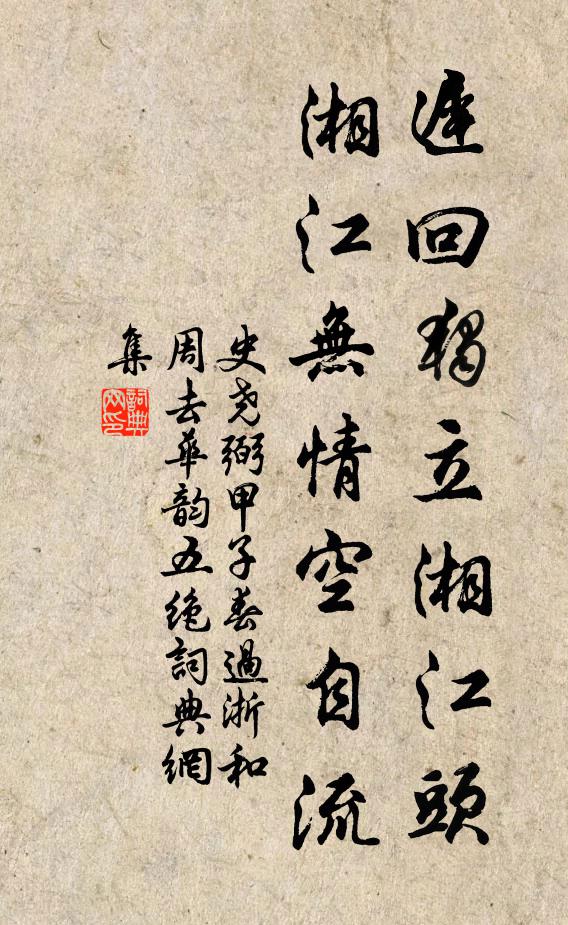 遅回獨立湘江頭
湘江無情空自流
史堯弼甲子春過浙和
周去華韵五絶詞典網
集
詞典網印